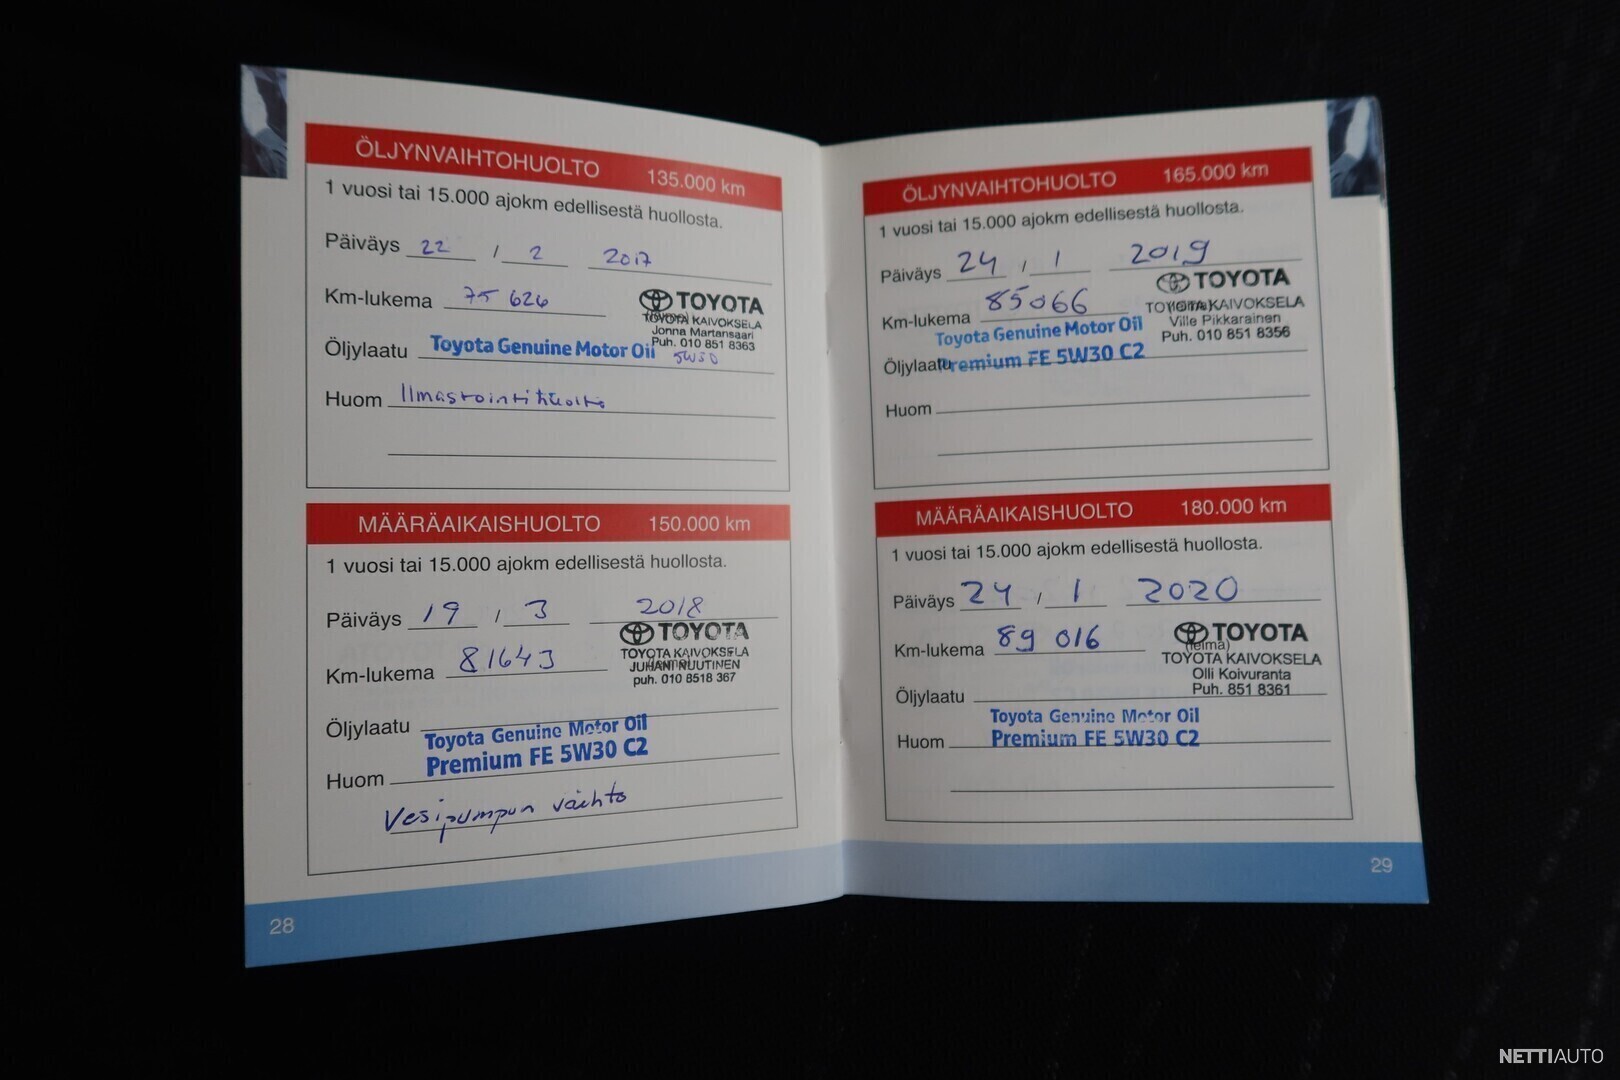 ÖLJYNVAIHTOHUOLTO 135.000 km
1 vuosi tai 15.000 ajokm edellisestä huollosta.
Päiväys 22 / 2 2017
Km-lukema 75 626
TOYOTA
TOYOTA KAIVOKSELA
Jonna Martansaari
Puh. 010 851 8363
Öljylaatu Toyota Genuine Motor Oil 5W30
Huom Ilmastointihuolto
MÄÄRÄAIKAISHUOLTO 150.000 km
1 vuosi tai 15.000 ajokm edellisestä huollosta.
Päiväys 19 / 3 2018
TOYOTA
TOYOTA KAIVOKSELA
Km-lukema 81643
JUHANI NUUTINEN
puh. 010 8518 367
Öljylaatu
Toyota Genuine Motor Oil
Premium FE 5W30 C2
Huom
Vesipumpun vaihto
28
ÖLJYNVAIHTOHUOLTO 165.000 km
1 vuosi tai 15.000 ajokm edellisestä huollosta.
Päiväys 24 / 1 2019
TOYOTA
Km-lukema 85066
TOYOTA KAIVOKSELA
Ville Pikkarainen
Puh. 010 851 8356
Toyota Genuine Motor Oil
Öljylaatu Premium FE 5W30 C2
Huom
MÄÄRÄAIKAISHUOLTO 180.000 km
1 vuosi tai 15.000 ajokm edellisestä huollosta.
Päiväys 24 / 1 2020
Km-lukema 89 016
TOYOTA
(leima)
TOYOTA KAIVOKSELA
Olli Koivuranta
Puh. 851 8361
Öljylaatu
Toyota Genuine Motor Oil
Huom Premium FE 5W30 C2
29
NETTIAUTO